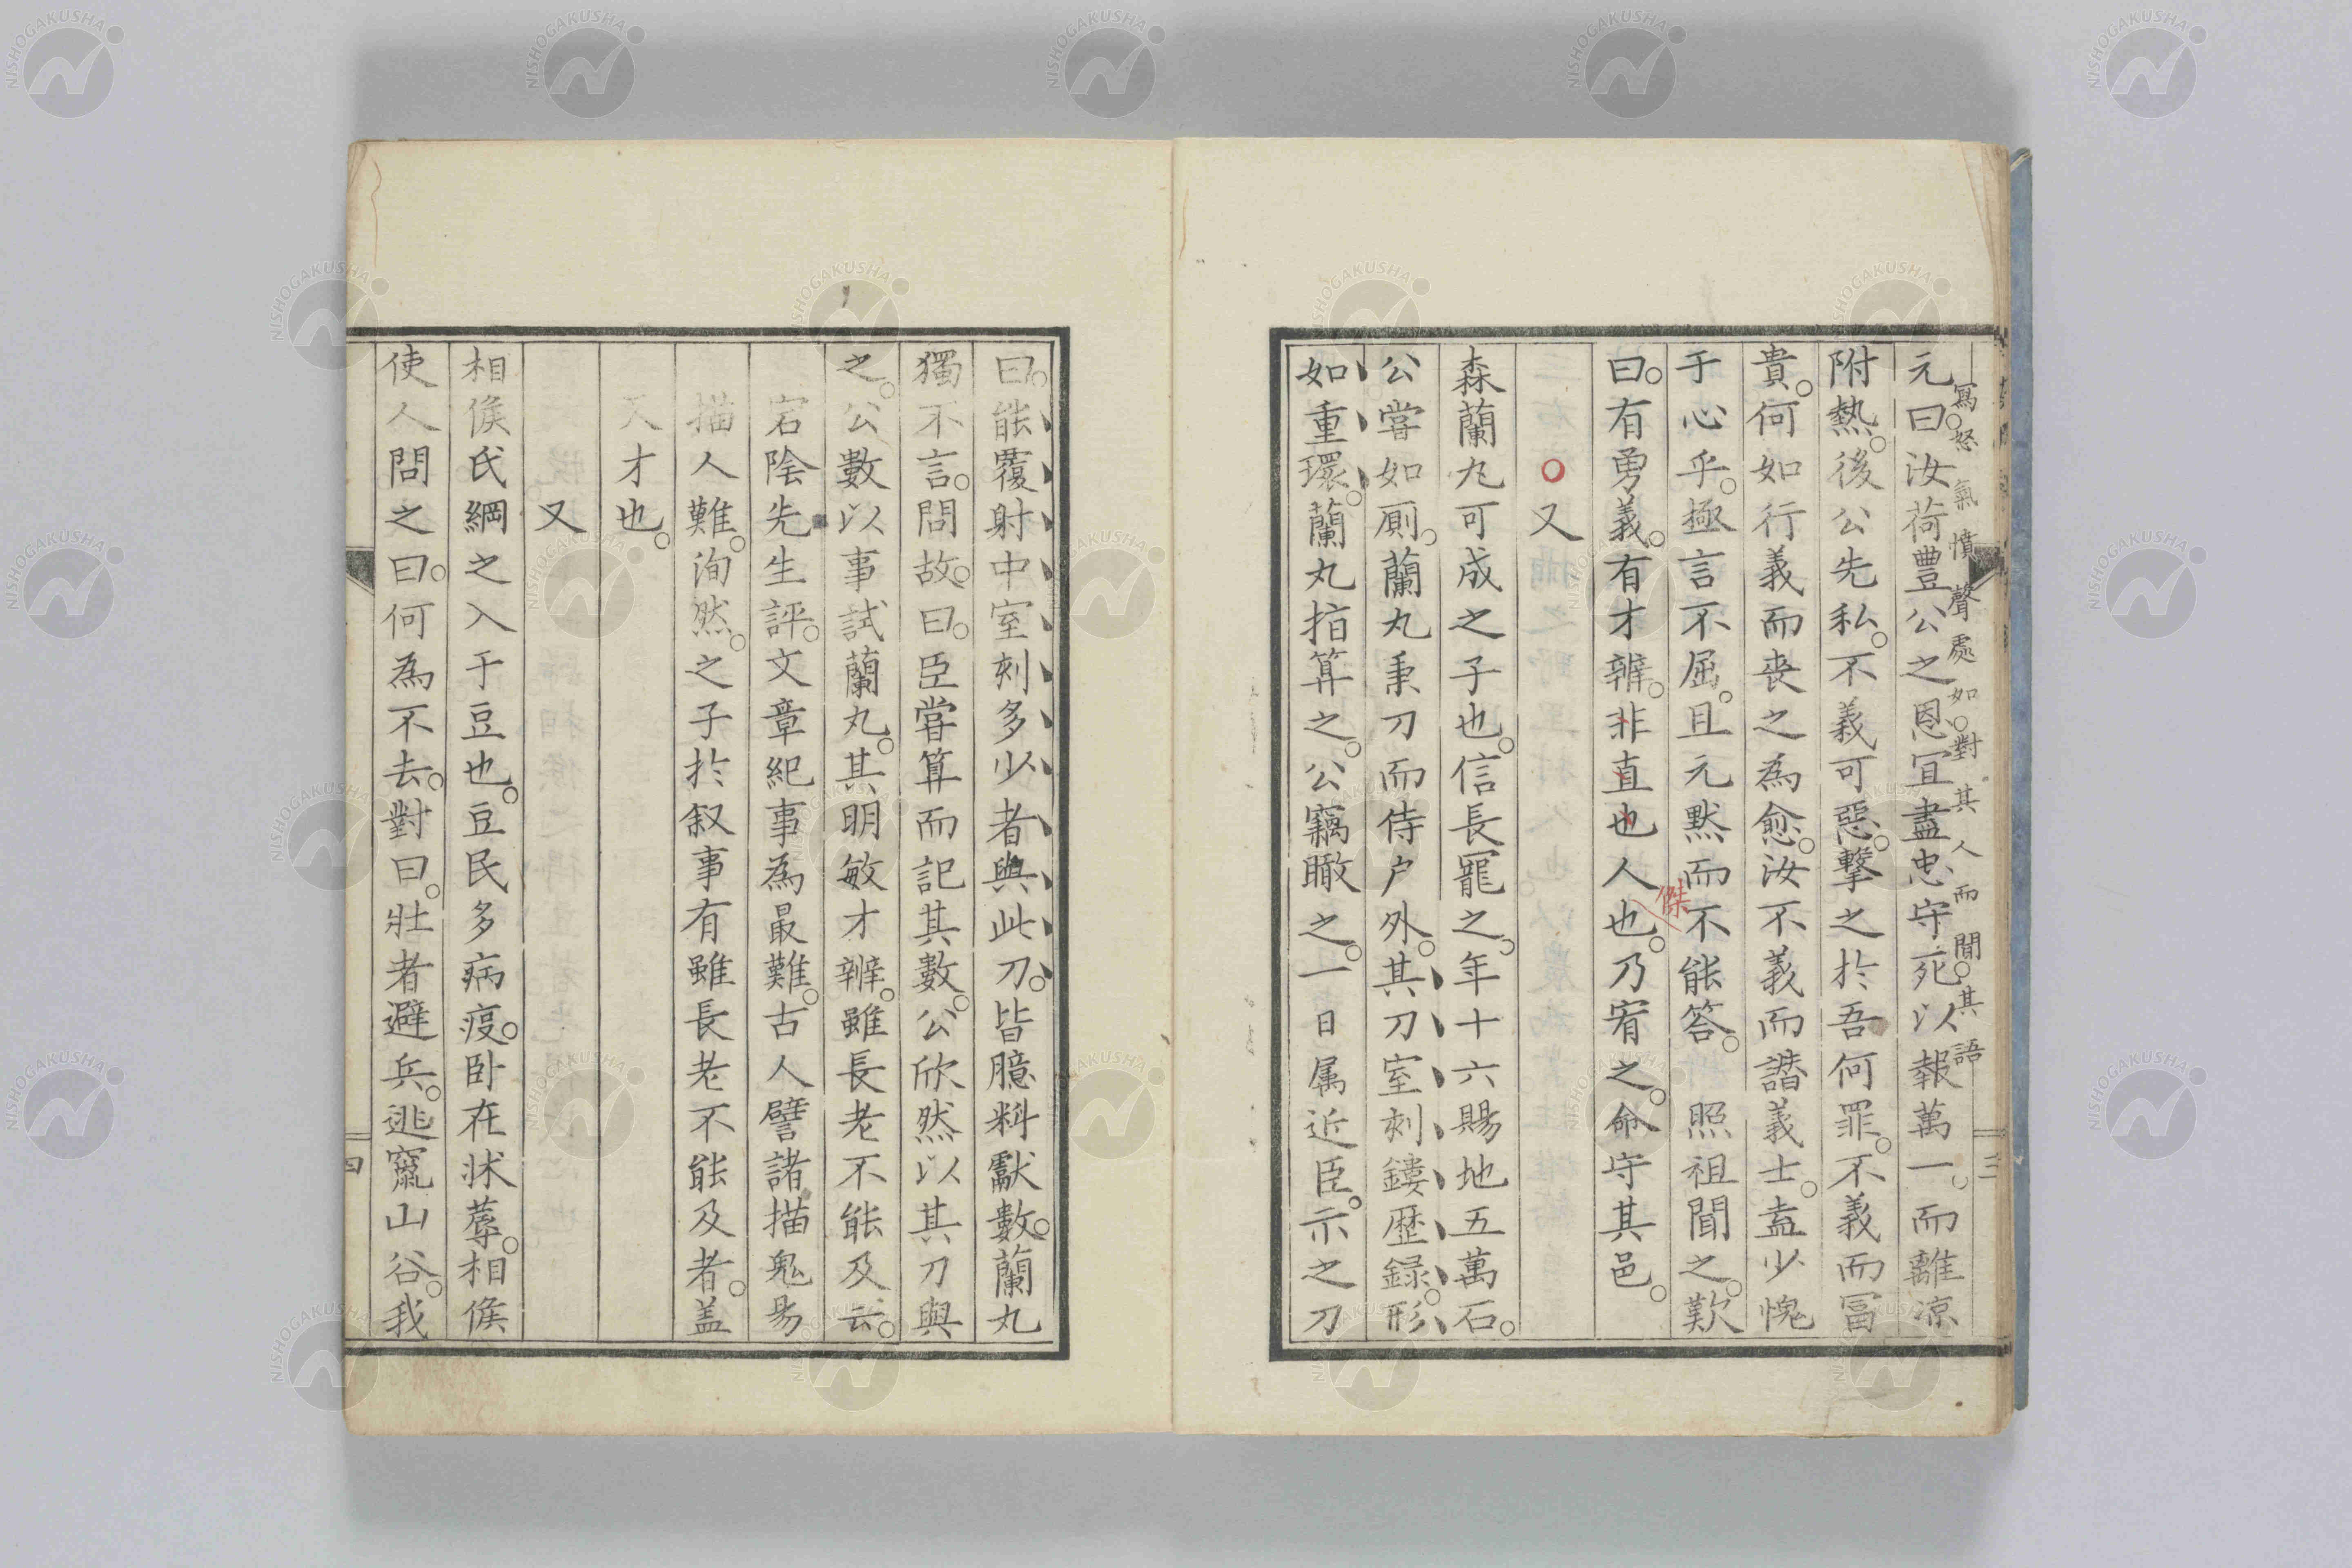 寫怒氣憤聲處如對其人而聞其語
元曰汝荷豐公之恩宜盡忠守死以報萬一而離凉
附熱後公先私不義可惡撃之於吾何罪不義而冨
貴何如行義而喪之為愈汝不義而譖義士盍少愧
于心乎極言不屈且元黙而不能答照祖聞之歎
曰有勇義有才辨非直也人也乃宥之命守其邑
傑
又
森蘭丸可成之子也信長寵之年十六賜地五萬石
公嘗如厠蘭丸秉刀而侍户外其刀室刻鏤歴録形
如重環蘭丸掐算之公竊瞰之一日属近臣示之刀
三
曰能覆射中室刻多少者與此刀皆臆料獻數蘭丸
獨不言問故曰臣嘗算而記其數公欣然以其刀與
之公數以事試蘭丸其明敏才辨雖長老不能及云
宕陰先生評文章紀事為最難古人譬諸描鬼易
描人難洵然之子於叙事有雖長老不能及者盖
天才也
又
相侯氏綱之入于豆也豆民多病疫卧在牀蓐相侯
使人問之曰何為不去對曰壯者避兵逃竄山谷我
四
NISHOGAKUSHA